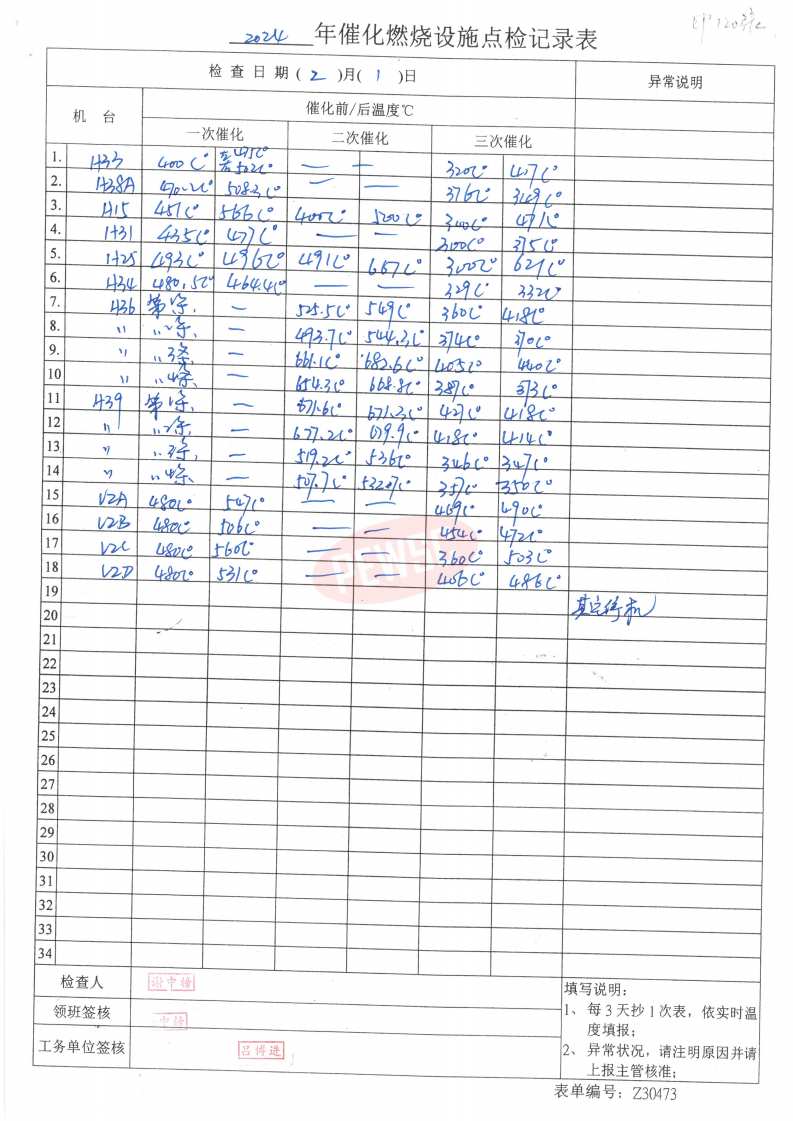 印120张
2024 年催化燃烧设施点检记录表
检查日期(2)月(1)日 异常说明
机 台 催化前/后温度℃
一次催化 二次催化 三次催化
1. H33 400C° 495C° 502C° — — 320C° 417C°
2. H38A 470.2C° 508.3C° — — 376C° 349C°
3. H15 451C° 566C° 400C° 520C° 300C° 471C°
4. H31 435C° 477C° — — 300C° 375C°
5. H25 493C° 496C° 491C° 667C° 300C° 621C°
6. H34 480.5C° 464.4C° — — 329C° 332C°
7. H36 第1条 — 525.5C° 549C° 360C° 418C°
8. 〃 〃2条 — 493.7C° 544.3C° 374C° 370C°
9. 〃 〃3条 — 661.1C° 682.6C° 405C° 440C°
10 〃 〃4条 — 654.3C° 668.8C° 387C° 373C°
11 H39 第1条 — 671.6C° 671.3C° 427C° 418C°
12 〃 〃2条 — 677.2C° 679.9C° 418C° 414C°
13 〃 〃3条 — 519.2C° 536C° 346C° 347C°
14 〃 〃4条 — 507.7C° 532.7C° 357C° 350C°
15 V2A 480C° 547C° — — 469C° 490C°
16 V2B 480C° 506C° — — 454C° 472C°
17 V2C 480C° 560C° — — 360C° 503C°
18 V2D 480C° 531C° — — 406C° 486C°
19 其它停机
20
21
22
23
24
25
26
27
28
29
30
31
32
33
34
检查人 谢中榜
领班签核 中榜
工务单位签核 吕博进
填写说明:
1、每3天抄1次表，依实时温
度填报;
2、异常状况，请注明原因并请
上报主管核准;
表单编号: Z30473